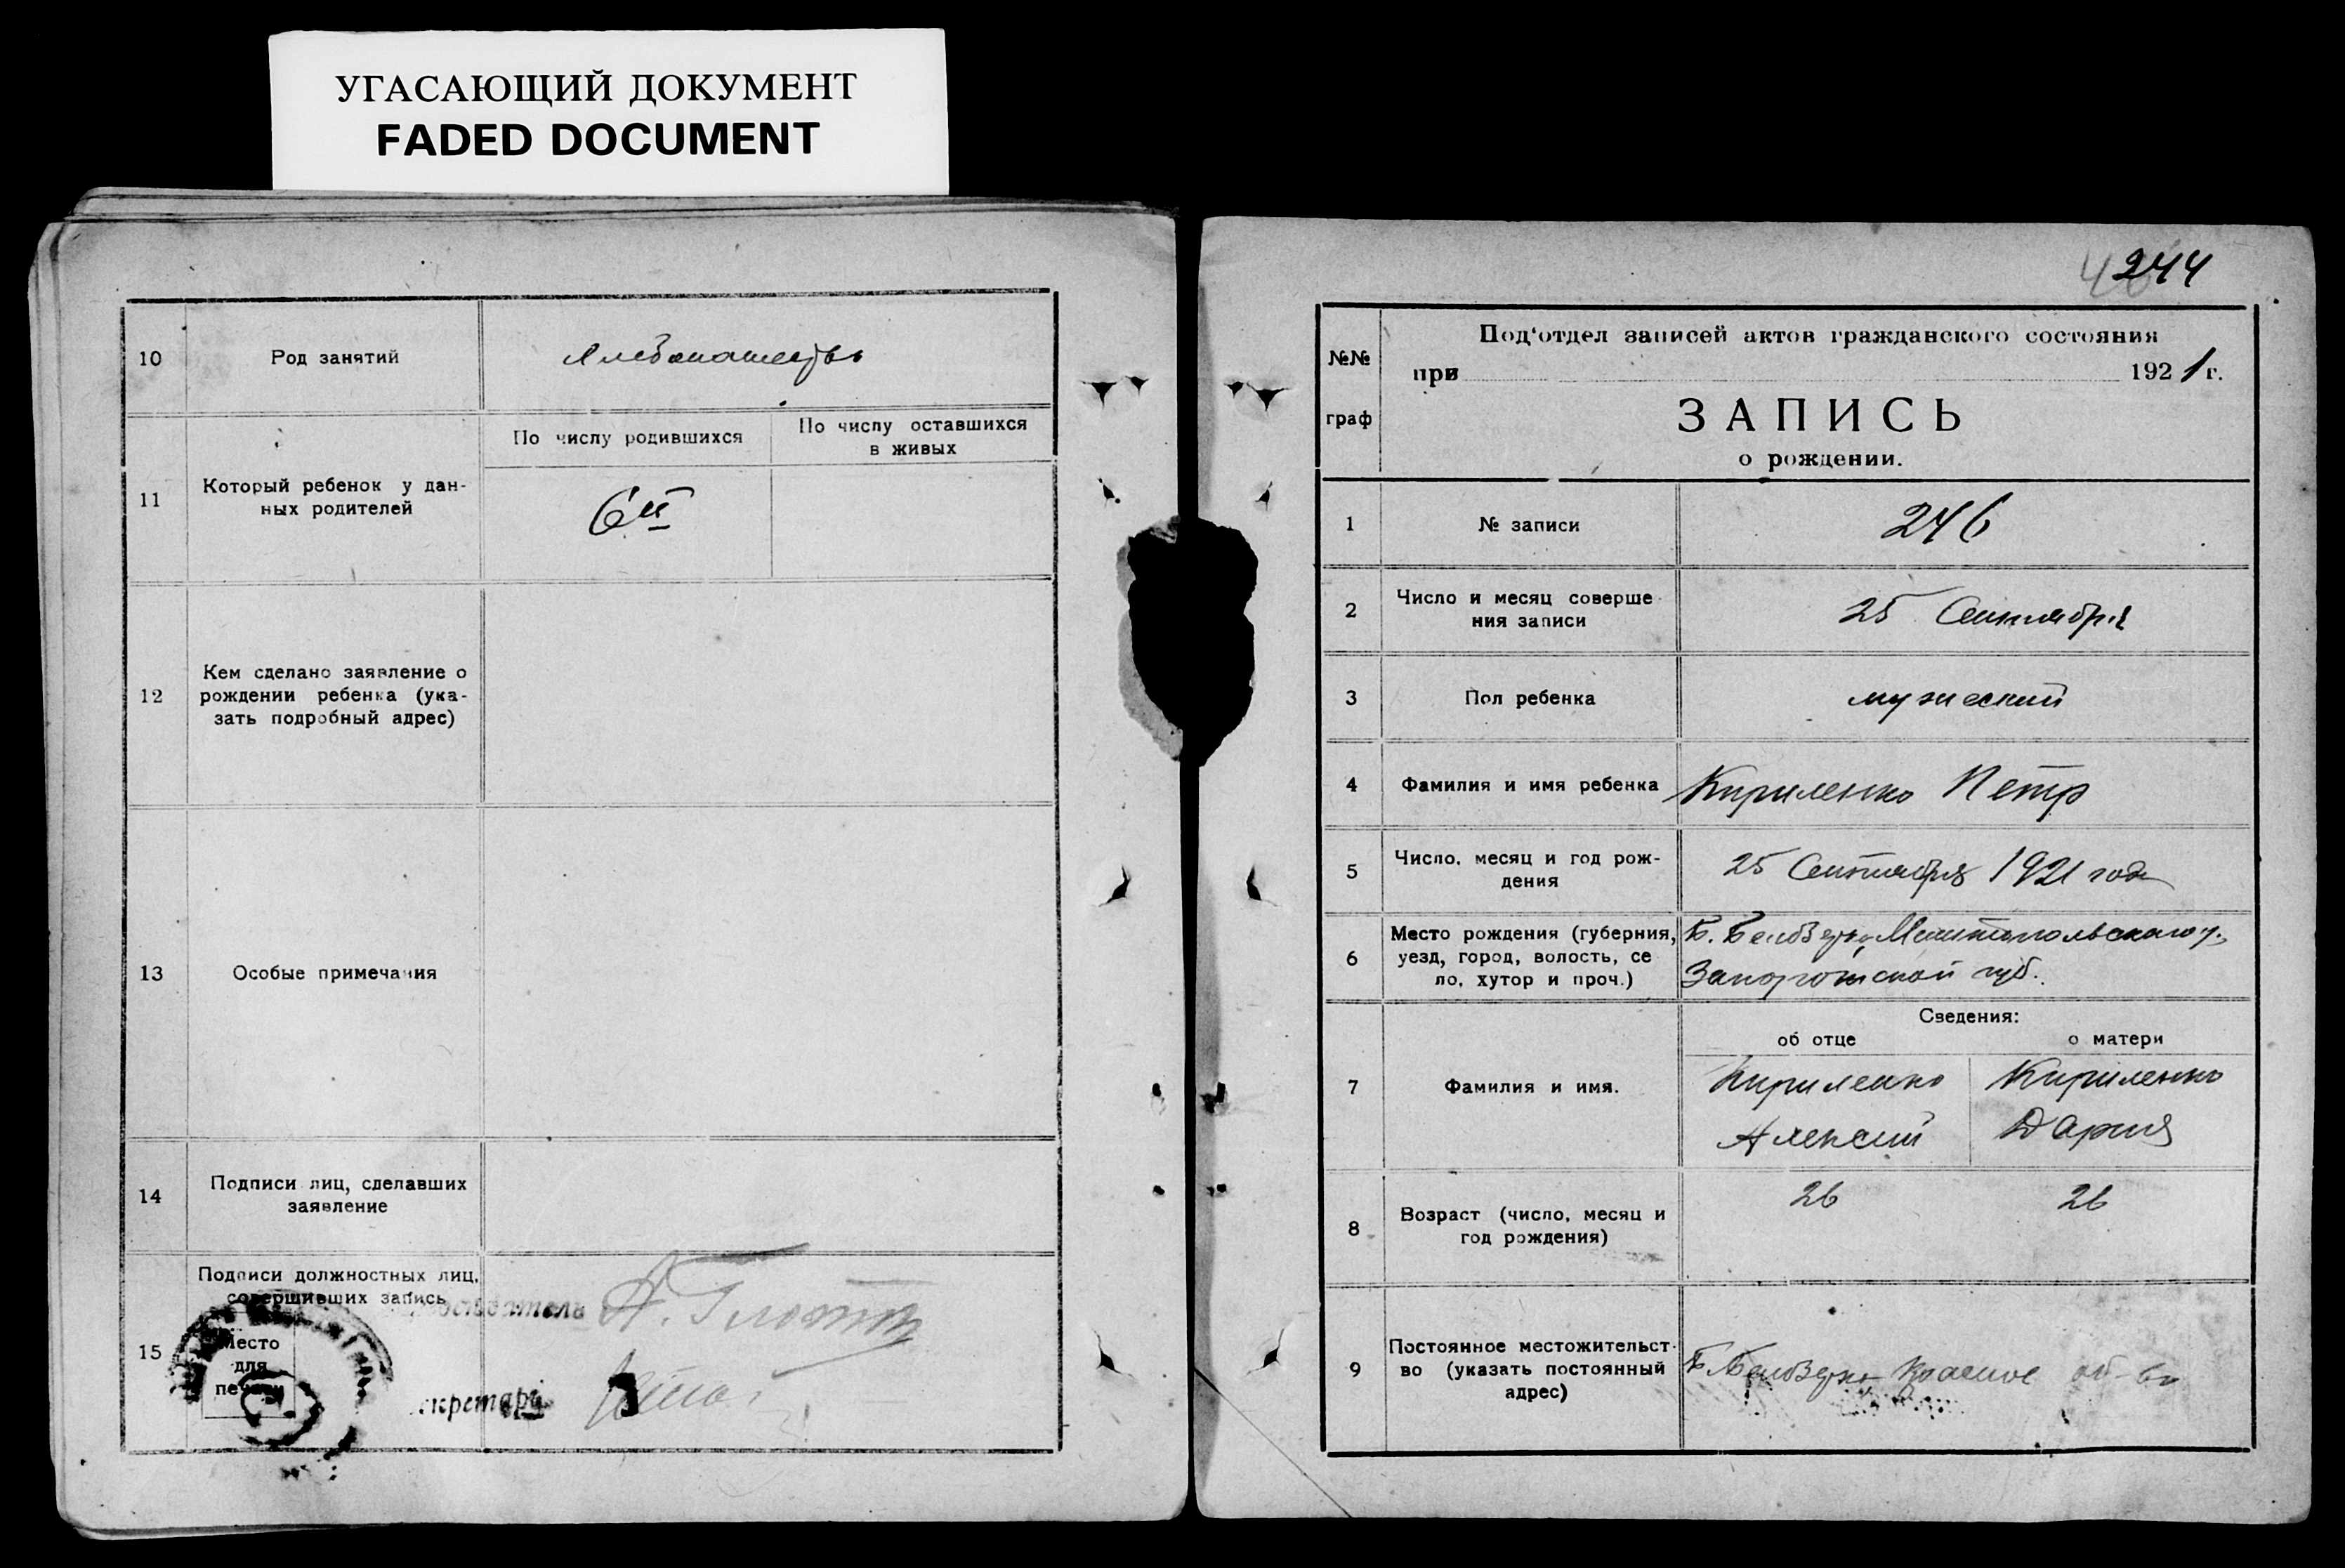 УГАСАЮЩИЙ ДОКУМЕНТ
FADED DOCUMENT
10
Род занятий
Хлебопашество
11
Который ребенок у дан-
ных родителей
По числу родившихся
По числу оставшихся
в живых
6й
12
Кем сделано заявление о
рождении ребенка (ука-
зать подробный адрес)
13
Особые примечания
14
Подписи лиц, сделавших
заявление
15
Подписи должностных лиц,
совершивших запись
Место
для
печати
екретарь
244
№№
граф
Под'отдел записей актов гражданского состояния
при 1921 г.
ЗАПИСЬ
о рождении.
1
№ записи
246
2
Число и месяц соверше
ния записи
25 Сентября
3
Пол ребенка
мужеский
4
Фамилия и имя ребенка
Кириленко Петр
5
Число, месяц и год рож-
дения
25 Сентября 1921 года
6
Место рождения (губерния,
уезд, город, волость, се
ло, хутор и проч.)
Б. Белозерка Мелитопольского у.
Запорожской губ.
Сведения:
об отце
о матери
7
Фамилия и имя.
Кириленко
Алексий
Кириленко
Дария
8
Возраст (число, месяц и
год рождения)
26
26
9
Постоянное местожительст-
во (указать постоянный
адрес)
Б. Белозерка Красное об-во